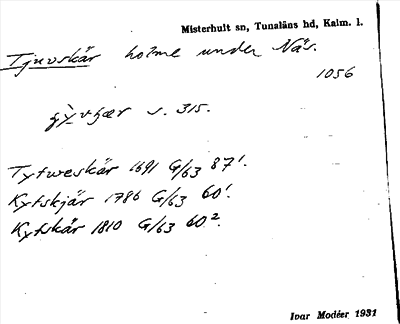 Misterhult sn, Tunaläns hd, Kalm. l.
Tjuvskär holme under Näs.
1056
s. 315.
Tyfweskär 1691 G/63 87¹.
Kyfskjär 1786 G/63 60¹.
Kyfskär 1810 G/63 60².
Ivar Modéer 1931